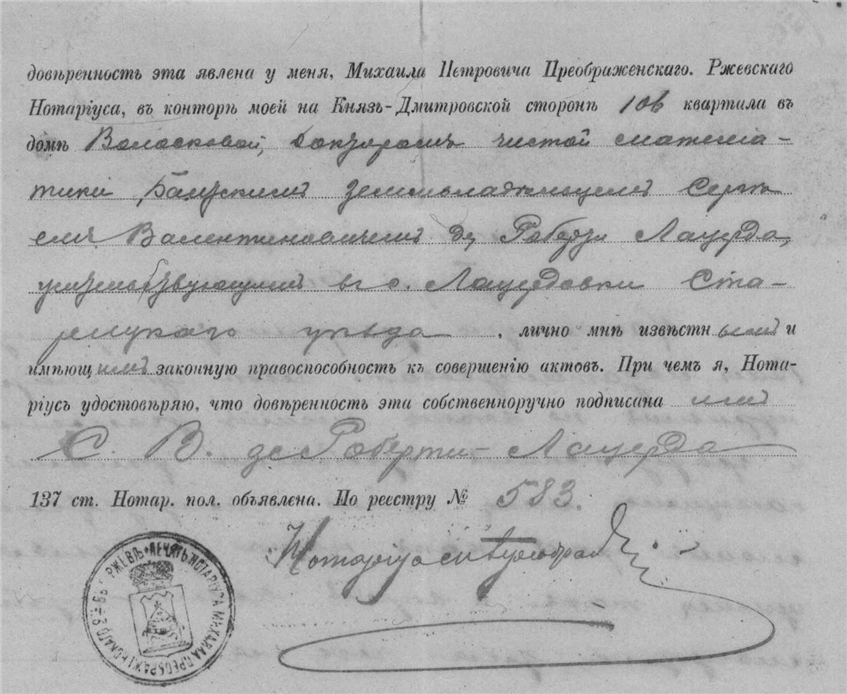 довѣренность эта явлена у меня, Михаила Петровича Преображенскаго. Ржевскаго
Нотаріуса, въ конторѣ моей на Князь-Дмитровской сторонѣ 106 квартала въ
домѣ Волосковой, докторомъ чистой математи-
тики землевладѣльцемъ Серге-
емъ Валентиновичемъ де Роберти Лацерда,
жительствующимъ въ с. Лацердовки Ста-
рицкаго уѣзда, лично мнѣ извѣстнымъ и
имѣющимъ законную правоспособность къ совершенію актовъ. При чемъ я, Нота-
ріусъ удостовѣряю, что довѣренность эта собственноручно подписана имъ
С. В. де Роберти-Лацерда
137 ст. Нотар. пол. объявлена. По реестру № 583.
Нотаріусъ МПреображ
ПЕЧАТЬ НОТАРІУСА МИХАИЛА ПРЕОБРАЖЕНСКАГО ВЪ Г. РЖЕВѢ